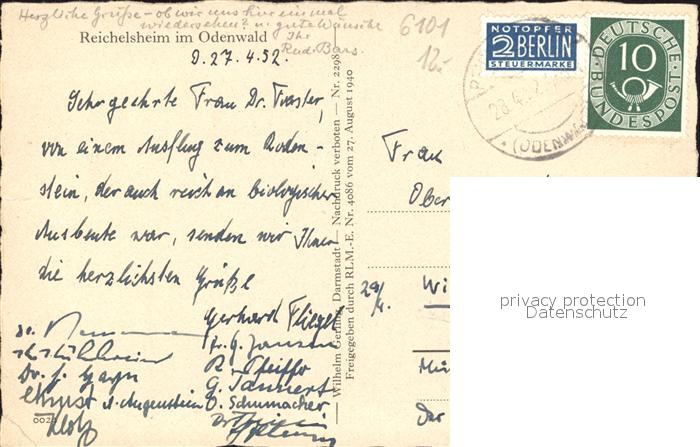 Herzliche Grüße – ob wir uns hier einmal
wiedersehen? u. gute Wünsche
Ihr
Rud. Bars.
6101
12,-
Reichelsheim im Odenwald
D. 27.4.52.
Sehr geehrte Frau Dr. Forster,
von einem Ausflug zum Roden-
stein, der auch reich an biologischer
Ausbeute war, senden wir Ihnen
die herzlichsten Grüße
Gerhard Fliegel
Dr. G. Jansen
R. Pfeiffer
Dr. J.
G. Tannert
Ernst A. Augenstein O. Schumacher
Klotz
002
Wilhelm Gerling, Darmstadt — Nachdruck verboten — Nr. 2298
Freigegeben durch RLM.-E. Nr. 4086 vom 27. August 1940
NOTOPFER
2 BERLIN
STEUERMARKE
DEUTSCHE
10
BUNDESPOST
28.4.52
(ODENWALD)
Frau
Ober
29/4.
Wi
Mü
Der
privacy protection
Datenschutz